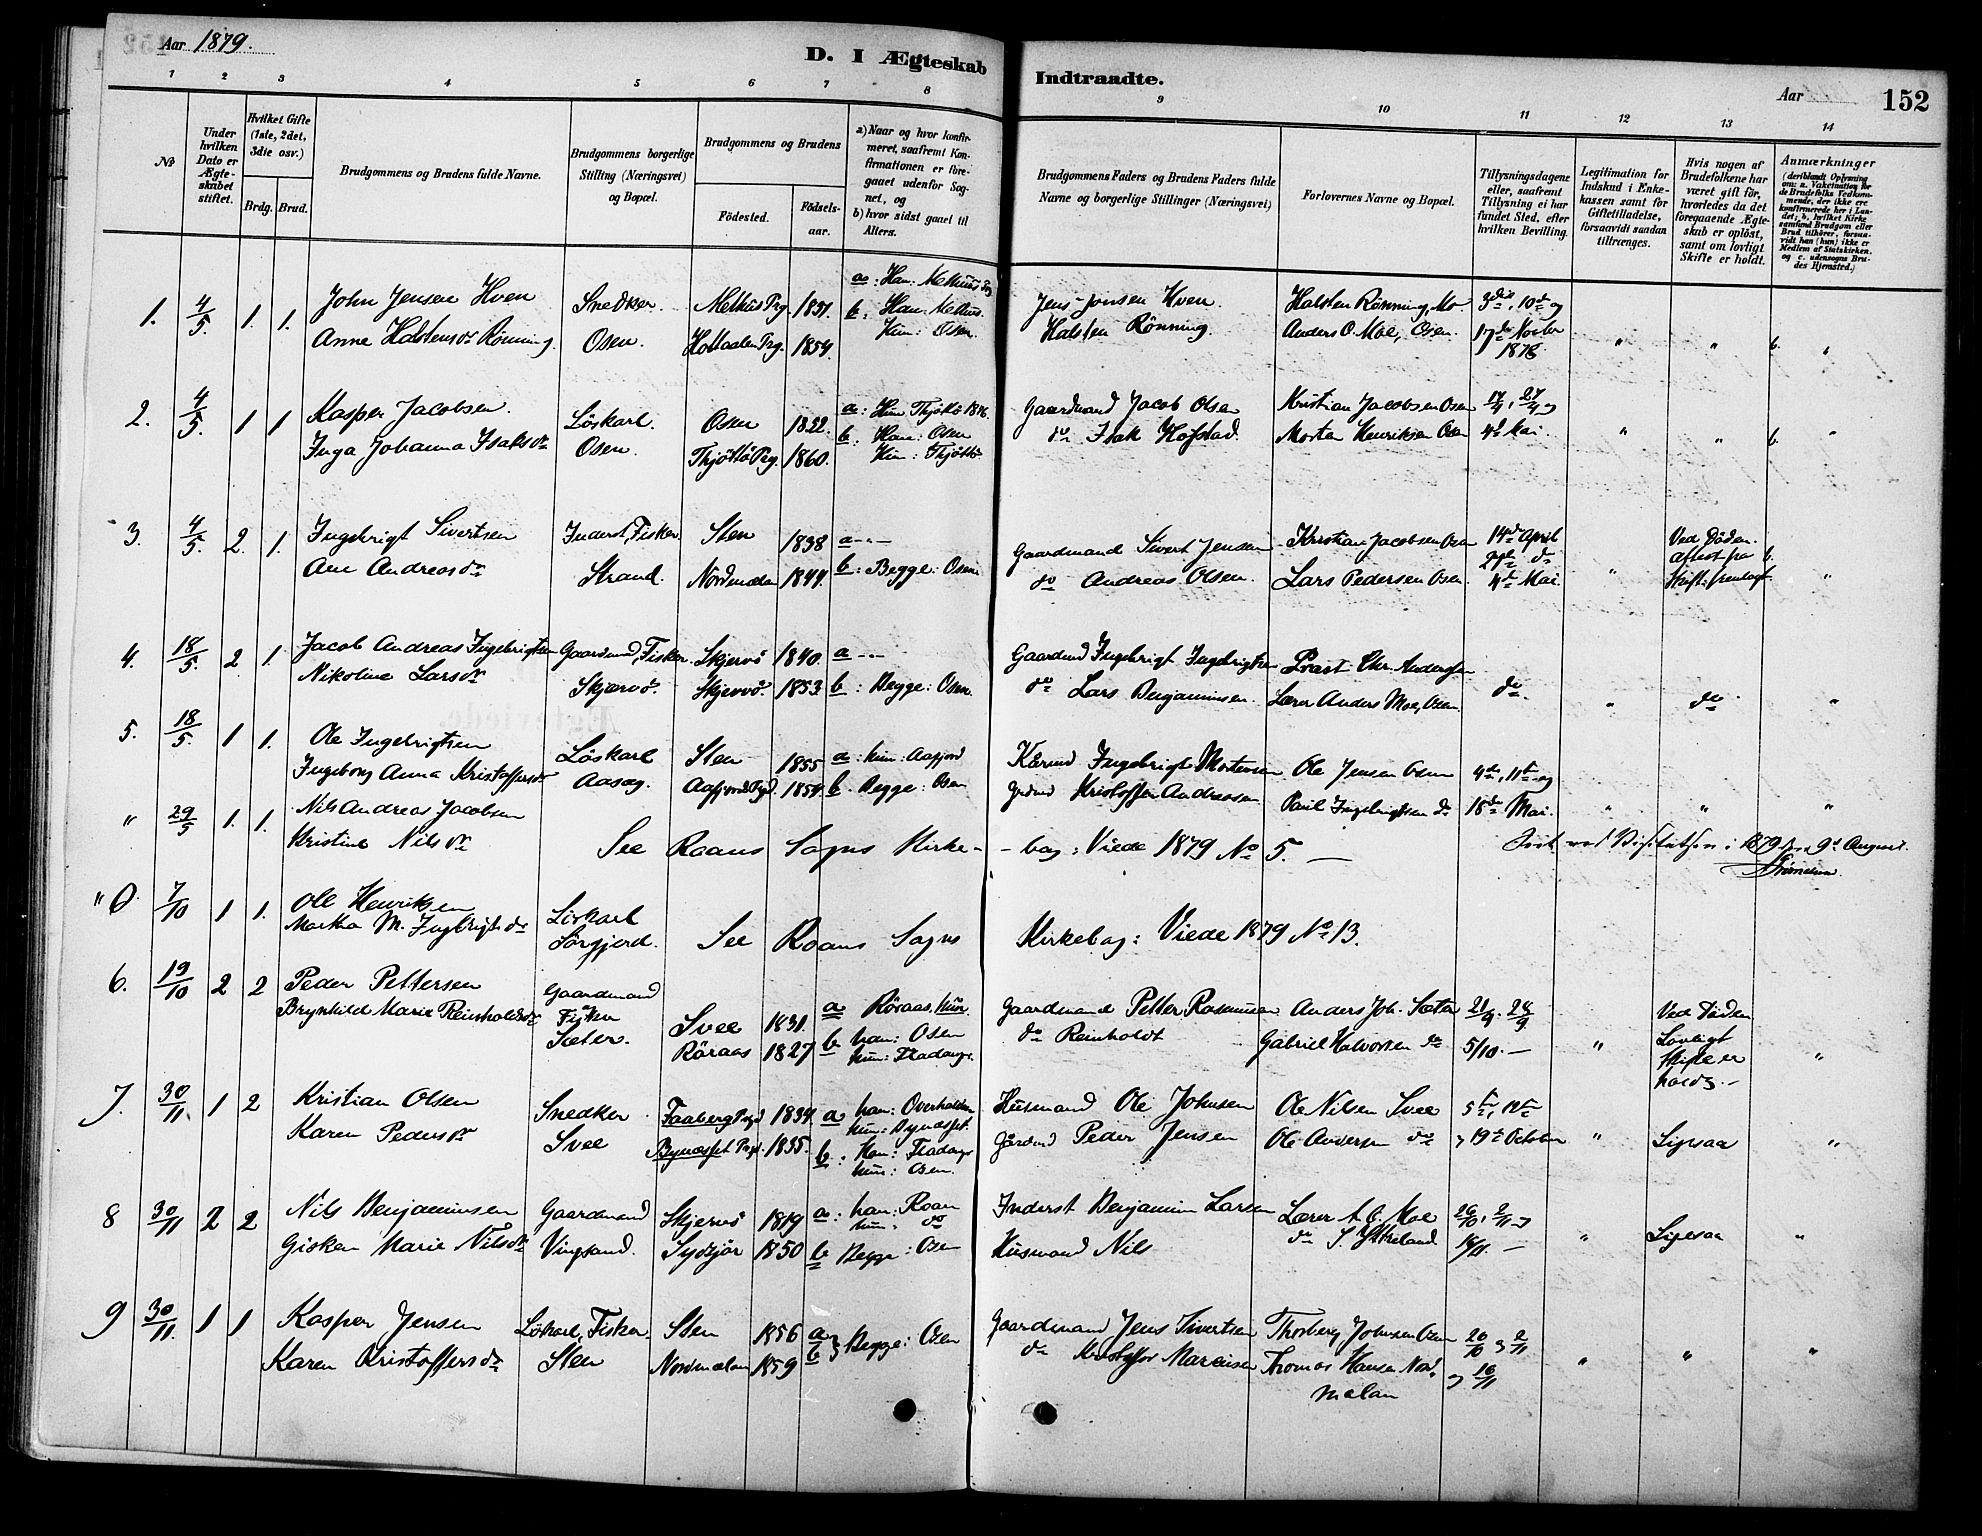 Aar 1879.
D. I Ægteskab Indtraadte.
Aar
152
1 2 3 4 5 6 7 8 9 10 11 12 13 14
No
Under hvilken Dato er Ægteskabet stiftet.
Hvilket Gifte (1ste, 2det, 3die osv.)
Brdg. Brud.
Brudgommens og Brudens fulde Navne.
Brudgommens borgerlige Stilling (Næringsvei) og Bopæl.
Brudgommens og Brudens
Fødested. Fødselsaar.
a) Naar og hvor konfirmeret, saafremt Konfirmationen er foregaaet udenfor Sognet, og
b) hvor sidst gaaet til Alters.
Brudgommens Faders og Brudens Faders fulde Navne og borgerlige Stillinger (Næringsvei)
Forlovernes Navne og Bopæl.
Tillysningsdagene eller, saafremt Tillysning ei har fundet Sted, efter hvilken Bevilling.
Legitimation for Indskud i Enkekassen samt for Giftetilladelse, forsaavidt saadan tiltrænges.
Hvis nogen af Brudefolkene har været gift før, hvorledes da det foregaaende Ægteskab er opløst, samt om lovligt Skifte er holdt.
Anmærkninger
1. 4/5 1. 1. John Jensen Hven Snedker. Melhus Prg. 1831. a: Han: Melhus b: Han: Melhus. Jens Jonsen Hven. Halsten Rønning, 3die, 10de og
Anne Halstensdr Rønning. Osen. Holtaalen Prg. 1854. Hun: Osen. Halsten Rønning. Anders O. Moe, Osen. 17de Novbr 1878. " " b. "
2. 4/5. 1 1 Kasper Jacobsen. Löskarl. Osen 1822. a: Hun Thjöttö 1876. b: Han: Osen Gaardmand Jacob Olsen Kristian Jacobsen Osen
Inga Johanna Isaksdr Osen. Thjöttö Prg. 1860. Hun: Thjöttö do Isak Hofstad. Morten Henriksen Osen 4de Mai. " " b. "
3. 4/5. 2. 1. Ingebrigt Sivertsen Inderst, Fisker Sten 1838 a - - Gaardmand Sivert Jensen Kristian Jacobsen Osen 14de April Ved Döden.
Ane Andreasdr Strand. Nordmelan 1844. b: Begge: Osen do Andreas Olsen. Lars Pedersen Osen. 4de Mai. " "
4. 18/5. 2 1. Jacob Andreas Ingebrigtsen Gaardmd, Fisker Skjervö 1840. a - - Gaardmd Ingebrigt Ingebrigtsen Præst Chr. Anderssen
Nikoline Larsdr Skjærvö. Skjervö. 1853. b: Begge: Osen. do Lars Benjaminsen. Lærer Anders Moe, Osen. do. " do. "
5. 18/5. 1 1. Ole Ingebrigtsen Löskarl Sten 1855 a: hun: Aafjord Ingebrigt Mortensen Ole Jensen Osen 4de, 11te og
Ingeborg Anna Kristoffersdr Aasag. 1854. b. Begge: Osen Kristoffer Andreasen Paul Ingebrigtsen do 18de Mai. " " "
" 29/5 1. 1. Nils Andreas Jacobsen
Kristine Nilsdr See Roans Sogns Kirke- - bog: Viede 1879 No 5. —
1879 9de August.
" 7/10 1 1. Ole Henriksen Löskarl
Martha M. Ingbrigtsdr Sörgjerd. See Roans Sogns Kirkebog: Viede 1879 No 13.
6. 19/10 2 2 Peder Pettersen Gaardmand Fisker Svee 1831. a Röraas, hun Gaardmand Petter Rasmusen Anders Joh. Sæter 21/9. 28/9 Ved Döden
Brynhild Marie Reinholdsdr Sæter. Röraas 1827 b han: Osen hun: Stadsn. do Reinholdt Gabriel Halvorsen do 5/10. — " Lovligt Skifte er holdt. — "
7. 30/11. 1 2 Kristian Olsen Snedker Faaberg Prgd 1834. a han: Overhalden hun: Bynæsset. Husmand Ole Johnsen Ole Nilsen Svee 5te, 12te
Karen Pedersdr Svee Bynæsset Prgd. 1835. b. Han: hun: Osen. Peder Jensen Ole Andersen do 19de October " Ligesaa "
8 30/11 2 2 Nils Benjaminsen Gaardmand Skjervö 1819 a: han: Roan hun: do Inderst Benjamin Larsen Lærer A. O. Moe 26/10, 2/11
Gisken Marie Nilsdr Vingsand. 1850 b Begge: Osen Husmand Nils " Ligesaa "
9 30/11. 1 1 Kasper Jensen Löskarl, Fisker. Sten 1856 a b } Begge: Osen Gaardmand Jens Sivertsen Thorberg Johnsen Osen
Karen Kristoffersdr Sten Nordmelan 1859 do Kristoffer Thomas Hansen Nordmelan " " "